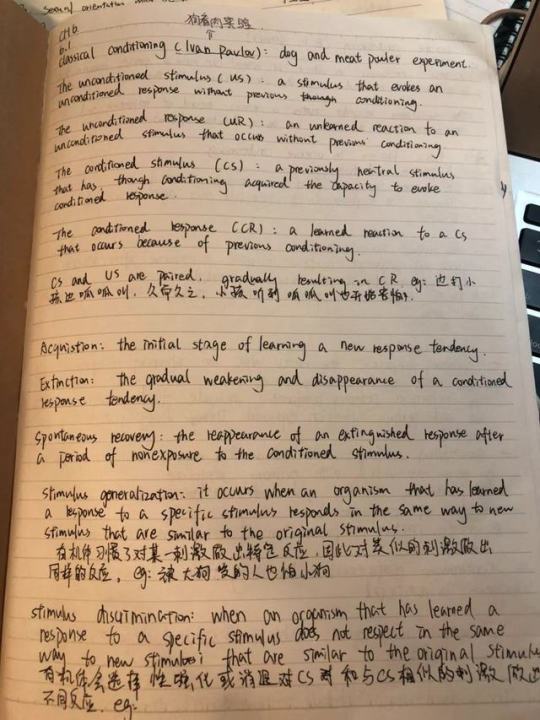 狗看肉实验
ch6
6.1
classical conditioning (Ivan Pavlov): dog and meat pouler experiment.
The unconditioned stimulus (US): a stimulus that evokes an
unconditioned response without previous though conditioning.
The unconditioned response (UR): an unlearned reaction to an
unconditioned stimulus that occurs without previous conditioning
The conditioned stimulus (CS): a previously neutral stimulus
that has, though conditioning acquired the capacity to evoke
conditioned response.
The conditioned response (CR): a learned reaction to a CS
that occurs because of previous conditioning.
CS and US are paired, gradually resulting in CR. eg: 边打小
孩边呱呱叫, 久而久之, 小孩听到呱呱叫也开始害怕.
Acquistion: the initial stage of learning a new response tendency.
Extinction: the gradual weakening and disappearance of a conditioned
response tendency.
Spontaneous recovery: the reappearance of an extinguished response after
a period of nonexposure to the conditioned stimulus.
stimulus generalization: it occurs when an organism that has learned
a response to a specific stimulus responds in the same way to new
stimulus that are similar to the original stimulus.
有机体习惯了对某一刺激做出特定反应, 因此对类似的刺激做出
同样的反应. eg: 被大狗 的人也怕小狗
stimulus discrimination: when an organism that has learned a
response to a specific stimulus does not respect in the same
way to new stimulus that are similar to the original stimulu
有机体会选择性强化或消退对CS 和与CS相似的刺激做出
不同反应. eg: